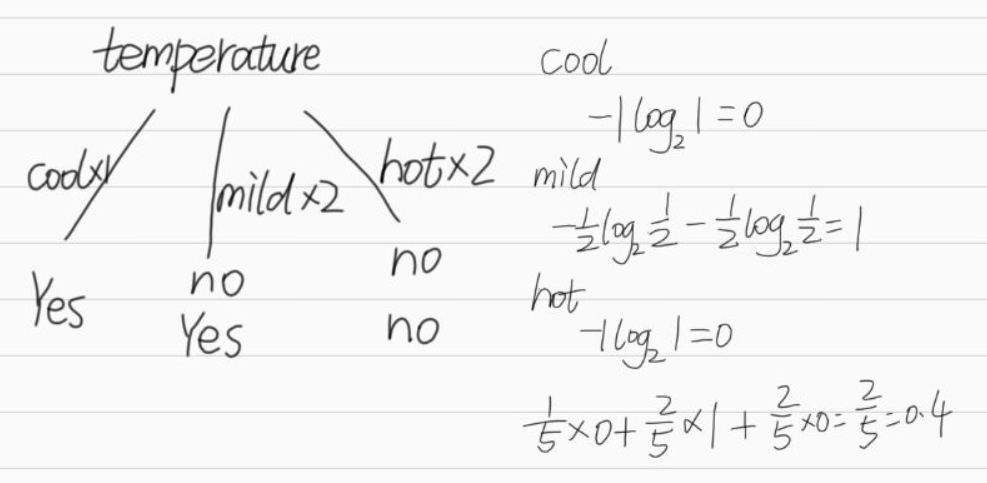 temperature
cool×1
mild×2
hot×2
Yes
no
Yes
no
no
cool
-1 log₂ 1 = 0
mild
-1/2 log₂ 1/2 - 1/2 log₂ 1/2 = 1
hot
-1 log₂ 1 = 0
1/5 × 0 + 2/5 × 1 + 2/5 × 0 = 2/5 = 0.4